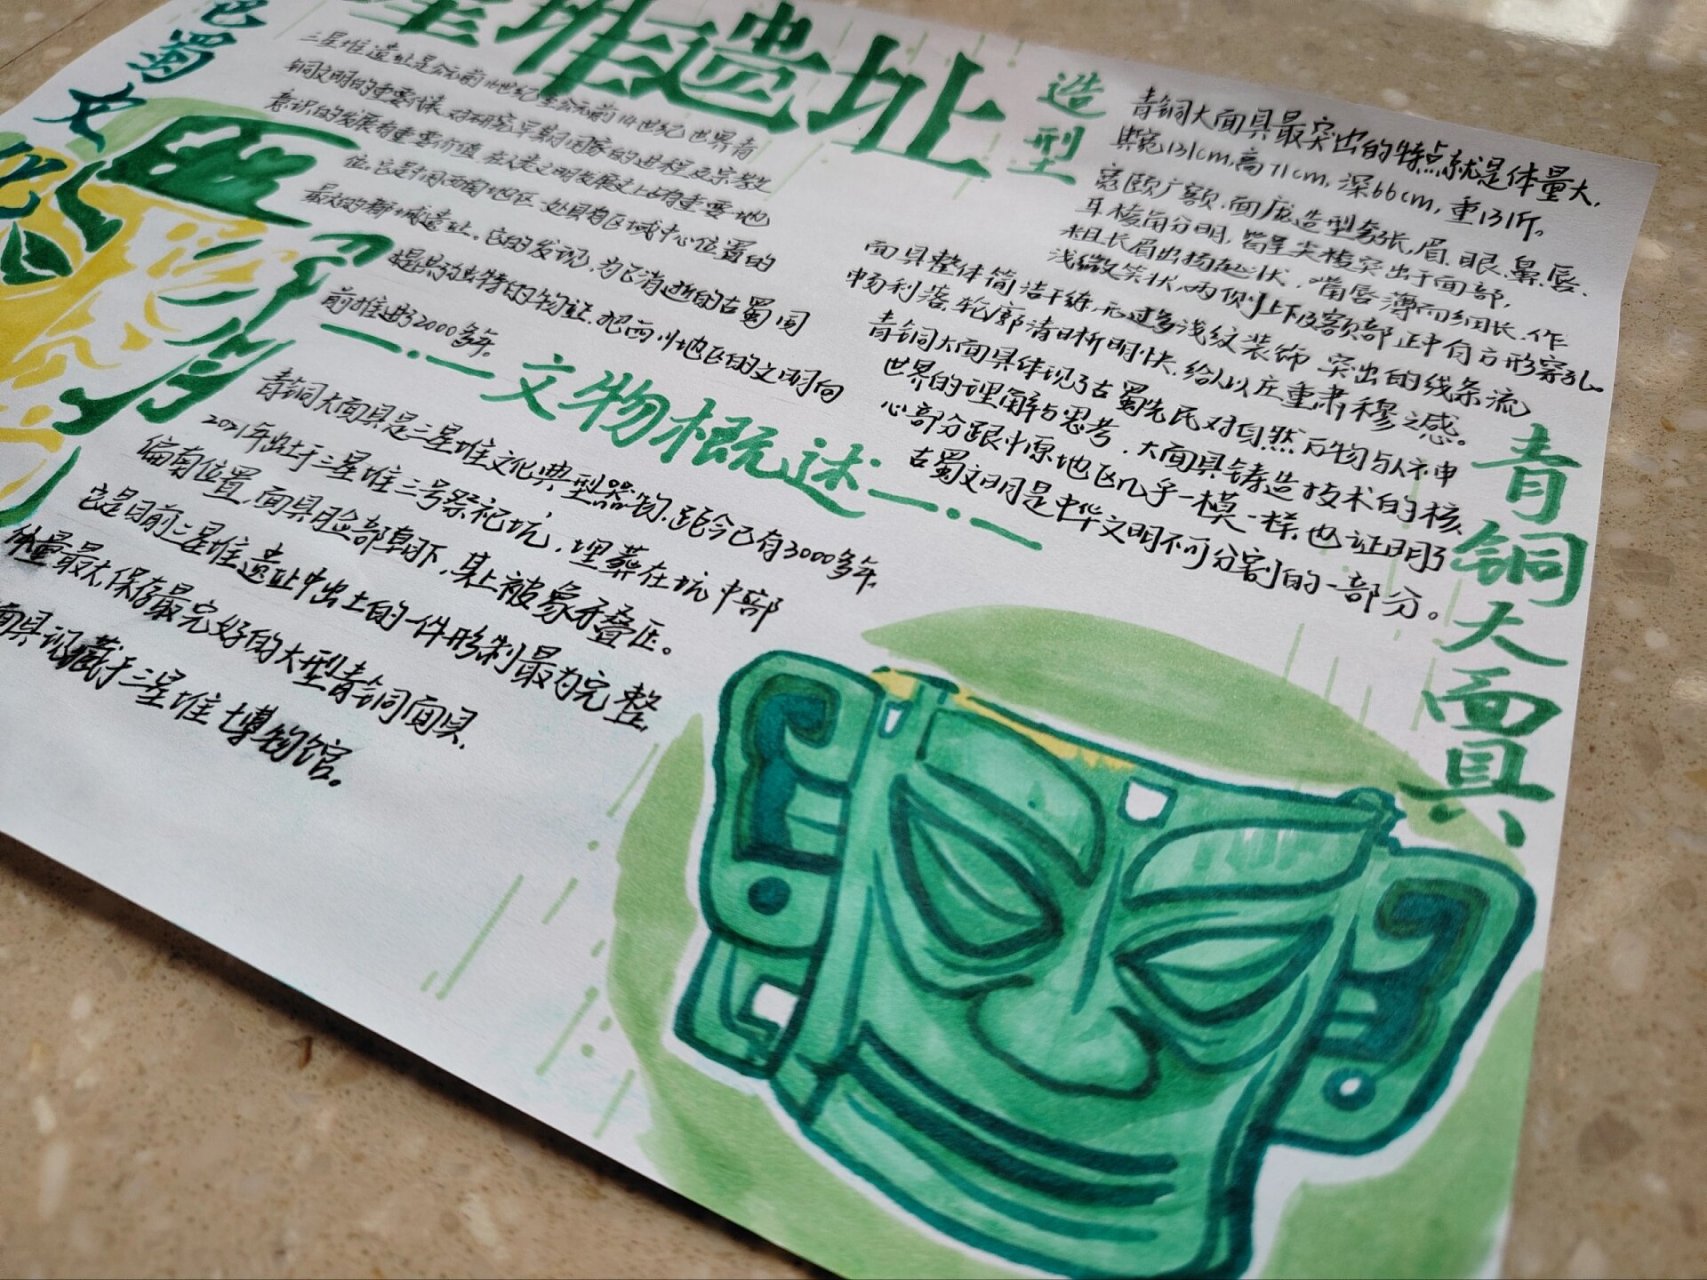 巴蜀文化
星堆遗址
三星堆遗址是公元前16世纪至公元前14世纪世界青
铜文明的重要代表,对研究早期国家的进程及宗教
意识的发展有重要价值,在人类文明发展史上占有重要地
位。它是中国西南地区一处具有区域中心位置的
最大的都城遗址。它的发现,为已消逝的古蜀国
提供了独特的物证,把四川地区的文明向
前推进了2000多年。
文物概述
青铜大面具是三星堆文化典型器物,距今已有3000多年
2021年出土于三星堆三号祭祀坑,埋葬在坑中部
偏南位置,面具脸部朝下,其上被象牙叠压。
它是目前三星堆遗址中出土的一件形制最为完整
体量最大保存最完好的大型青铜面具.
面具现藏于三星堆博物馆。
造型
青铜大面具最突出的特点就是体量大,
其宽131cm,高71cm,深66cm,重131斤。
宽颐广额,面庞造型夸张,眉、眼、鼻、唇、
耳棱角分明,皆呈尖棱突出于面部,
粗长眉出扬起状,嘴唇薄而细长,作
浅微笑状,两侧上下及额部正中有方形穿孔
面具整体简洁干练,无过多浅纹装饰 突出的线条流
畅利落,轮廓清晰明快,给人以庄重肃穆之感。
青铜大面具体现了古蜀先民对自然万物与人神
世界的理解与思考,大面具铸造技术的核
心部分跟中原地区几乎一模一样,也证明了
古蜀文明是中华文明不可分割的一部分。
青铜大面具